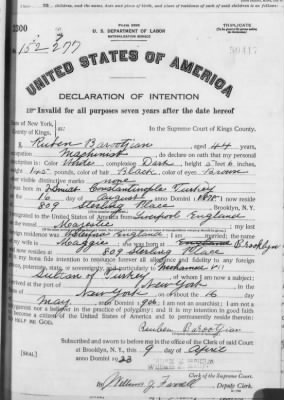 TRIPLICATE
U. S. DEPARTMENT OF LABOR
NATURALIZATION SERVICE
152-277
UNITED STATES OF AMERICA
DECLARATION OF INTENTION
Invalid for all purposes seven years after the date hereof
State of New York,
County of Kings,
In the Supreme Court of Kings County.
I, Ruben Barootjian, aged 44 years,
occupation Machinist, do declare on oath that my personal
description is: Color White, complexion Dark, height 5 feet 6 inches,
weight 145 pounds, color of hair Black, color of eyes Brown
other visible distinctive marks none
Constantinople Turkey
16 day of August, anno Domini 1878;
809 Sterling Place, Brooklyn, N. Y.
emigrated to the United States of America from Liverpool England
Majestic
England; I am married; the name
wife is Maggie; she was born at England Brooklyn
809 Sterling Place
It is my bona fide intention to renounce forever all allegiance and fidelity to any foreign
prince, potentate, state, or sovereignty, and particularly to Mohammed VI
Sultan of Turkey, of whom I am now a subject;
arrived at the port of New York, in the
New York, on or about the 16 day
May, anno Domini 190; I am not an anarchist; I am not a
polygamist nor a believer in the practice of polygamy; and it is my intention in good faith
to become a citizen of the United States of America and to permanently reside therein:
HELP ME GOD.
Reuben Barootjian
Subscribed and sworn to before me in the office of the Clerk of said Court
[SEAL] at Brooklyn, N. Y., this 9 day of April
anno Domini 1923
Clerk of the Supreme Court.
By William J. Farrell, Deputy Clerk.